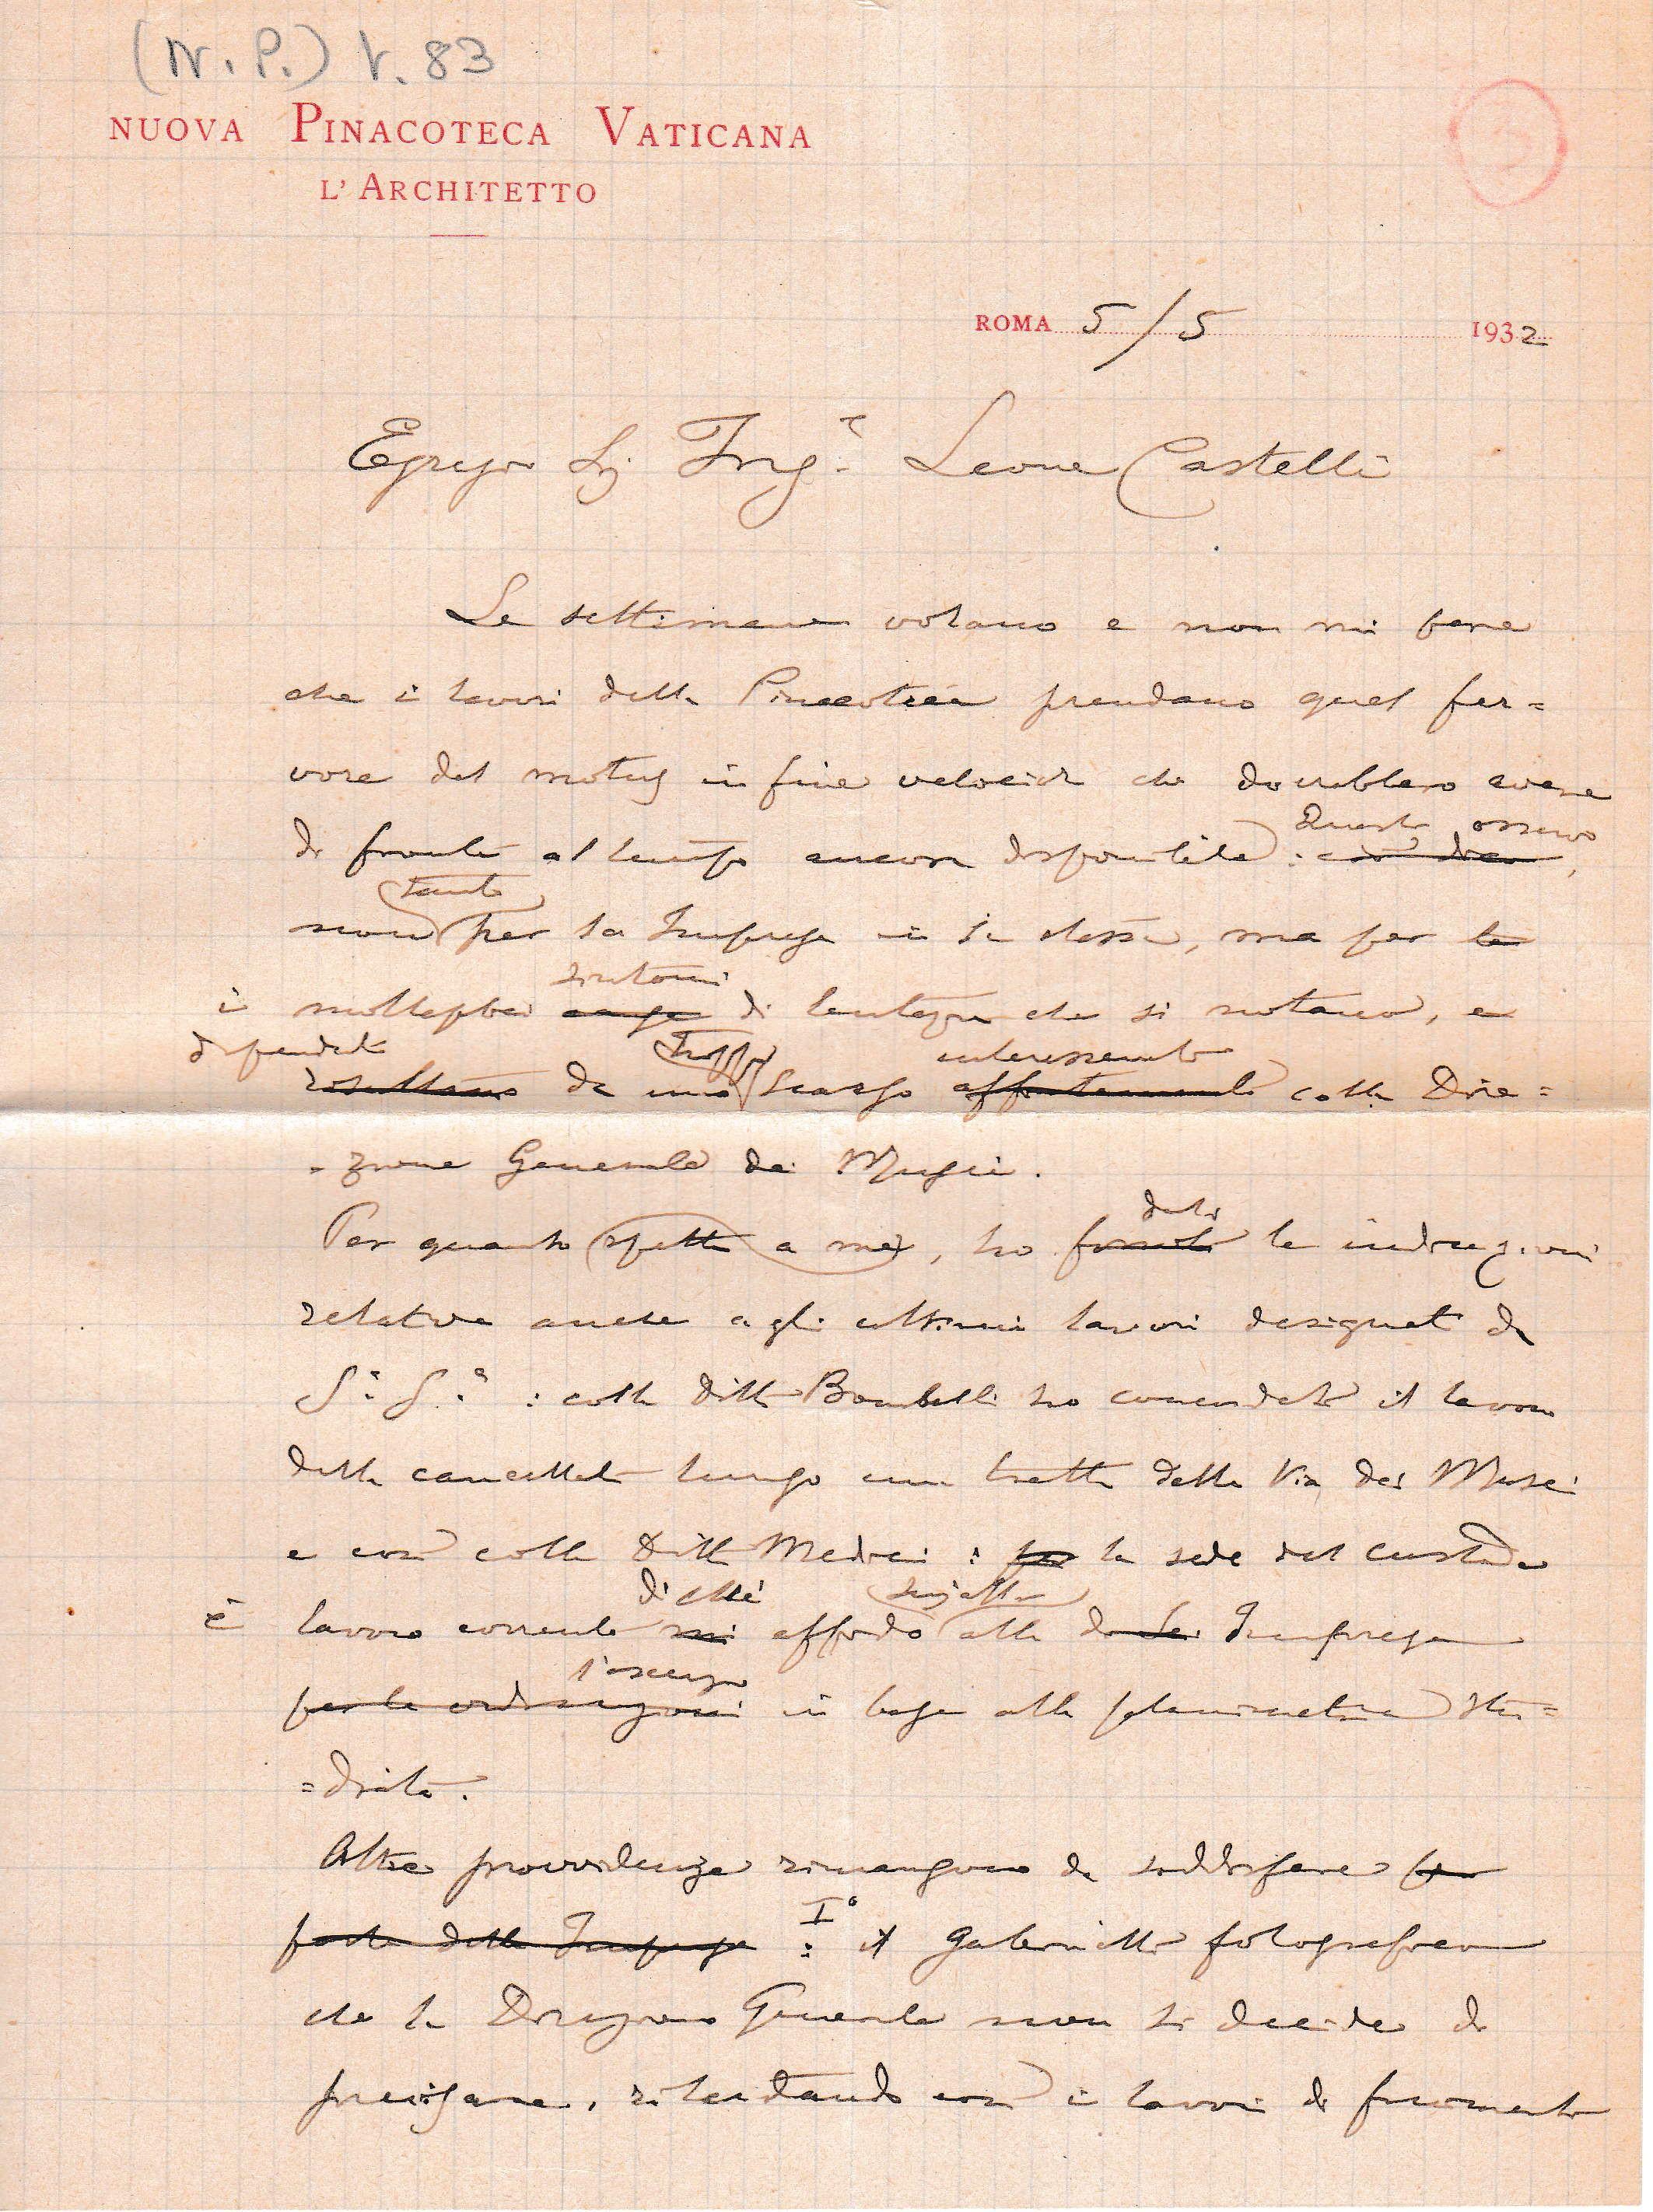 (N. P.) V. 83
NUOVA PINACOTECA VATICANA
L' ARCHITETTO
ROMA 5/5 1932
Egregio Sig. Ing.e Leone Castelli
Le settimane volano e non mi pare
che i lavori della Pinacoteca prendano quel fer=
vore del motus in fine velocior che dovrebbero avere
di fronte al tempo ancora disponibile: ciò dico,
Questo osservo
tanto
non per la Impresa in se stessa, ma per le
sintomi
i molteplici di lentezza che si notano, e
dipendenti troppo interessamento
risultano da uno scarso affiatamento colla Dire=
=zione Generale dei Musei.
dato
Per quanto spetta a me, ho fornito le indicazioni
relative anche agli ultimi lavori designati da
S.a S.a : colla Ditta Bombelli ho concordato il lavoro
della cancellata lungo un tratto della Via dei Musei
e così colla Ditta Medici : per la sede del custode
di chè
è lavoro corrente mi affido alla Impresa
per le ordinazioni in base alla planimetria stu=
=diata.
Altre provvidenze rimangono da soddisfare per
I°
parte della Impresa : il gabinetto fotografico
che la Direzione Generale non si decide di
precisare, ritardando così i lavori di finimento